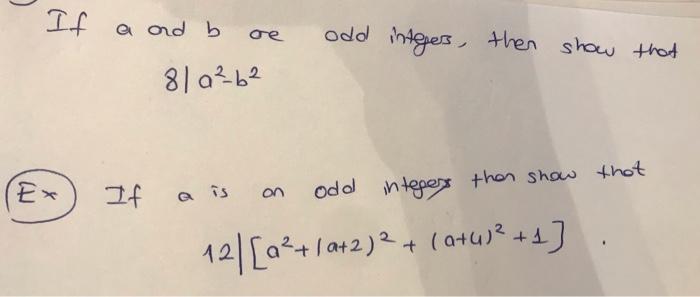 If a and b are odd integers, then show that
8| a²-b²
Ex If a is an odd integers then show that
12|[a²+(a+2)²+(a+4)²+1].